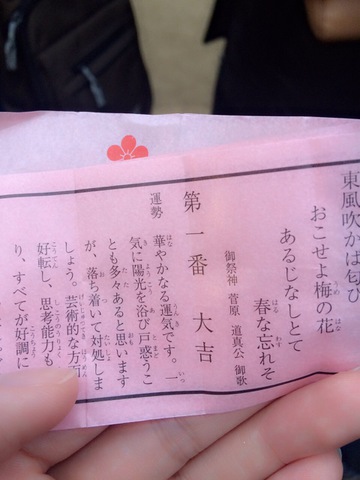 東風吹かば匂ひ
おこせよ梅の花
あるじなしとて
春な忘れそ
御祭神 菅原 道真公 御歌
第一番 大吉
運勢
華やかなる運気です。一
気に陽光を浴び戸惑うこ
とも多々あると思います
が、落ち着いて対処しま
しょう。芸術的な方面
好転し、思考能力も
り、すべてが好調に